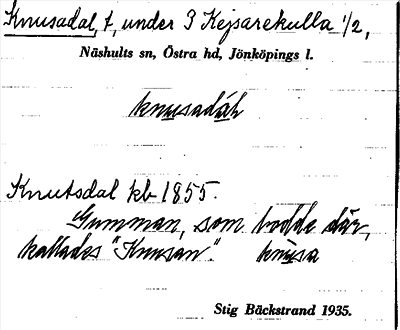 Knusadal, t, under 3 Kejsarekulla 1/2,
Näshults sn, Östra hd, Jönköpings l.
knusadáḷ
Knutsdal kb 1855.
Gumman, som bodde där,
kallades "Knusan". knùsa
Stig Bäckstrand 1935.